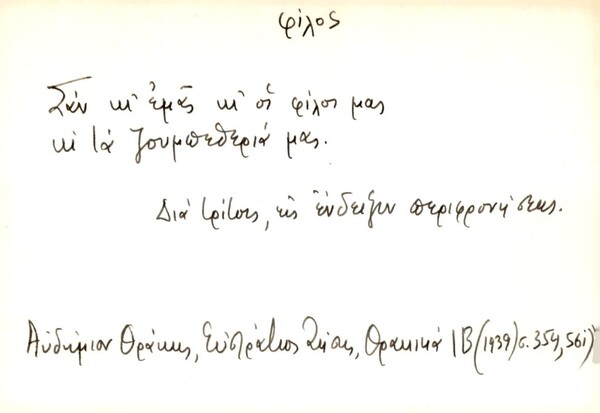 φίλος
Σάν κι' ἐμᾶς κι' οἱ φίλοι μας
κι τά ζουμπεθεριά μας.
Διά τρίτους, εἰς ἔνδειξιν περιφρονήσεως.
Αὐδήμιον Θράκης, Εὐστράτιος Ζήσης, Θρακικά ΙΒ (1939) σ. 354, 561)